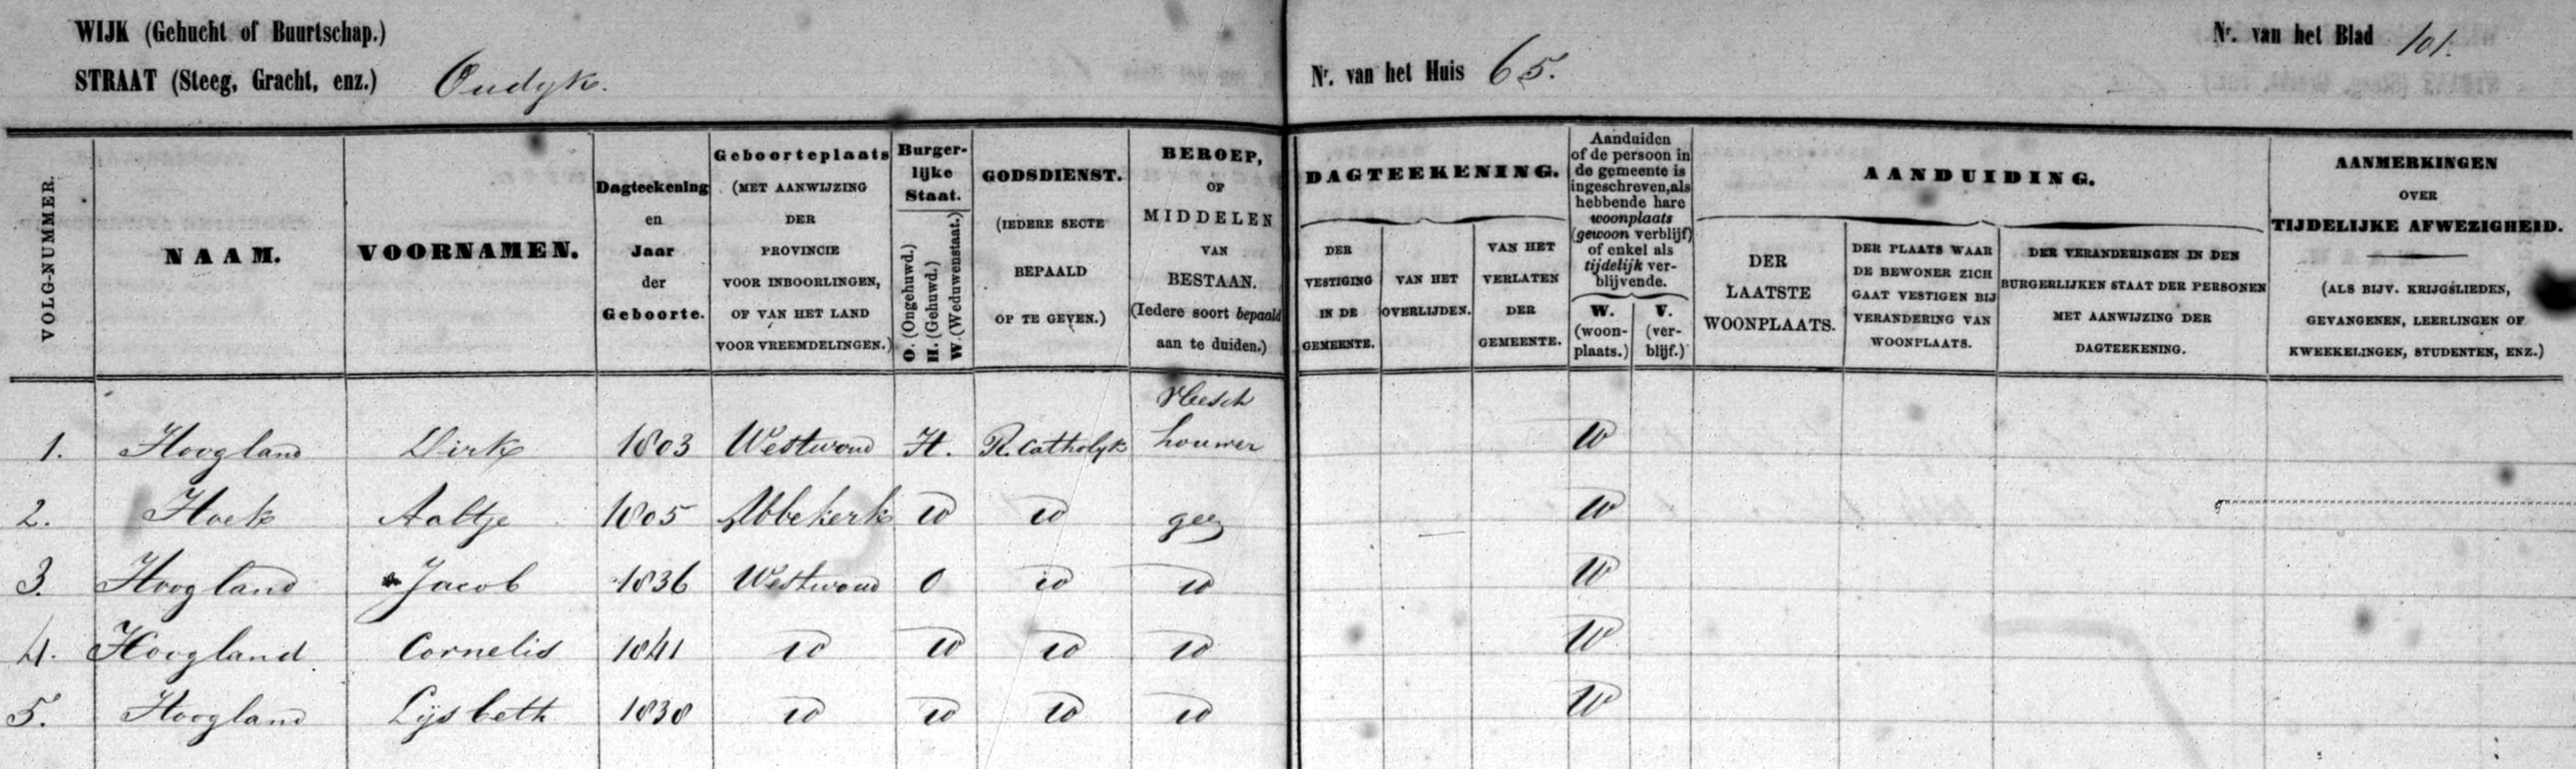 WIJK (Gehucht of Buurtschap.)
STRAAT (Steeg, Gracht, enz.) Oudyk.
Nr. van het Huis 65.
Nr. van het Blad 101.
VOLG-NUMMER.
NAAM.
VOORNAMEN.
Dagteekening
en
Jaar
der
Geboorte.
Geboorteplaats
(MET AANWIJZING
DER
PROVINCIE
VOOR INBOORLINGEN,
OF VAN HET LAND
VOOR VREEMDELINGEN.)
Burger-
lijke
Staat.
O. (Ongehuwd.)
H. (Gehuwd.)
W. (Weduwenstaat.)
GODSDIENST.
(IEDERE SECTE
BEPAALD
OP TE GEVEN.)
BEROEP,
OF
MIDDELEN
VAN
BESTAAN.
(Iedere soort bepaald
aan te duiden.)
DAGTEEKENING.
DER
VESTIGING
IN DE
GEMEENTE.
VAN HET
OVERLIJDEN.
VAN HET
VERLATEN
DER
GEMEENTE.
Aanduiden
of de persoon in
de gemeente is
ingeschreven, als
hebbende hare
woonplaats
(gewoon verblijf)
of enkel als
tijdelijk ver-
blijvende.
W.
(woon-
plaats.)
V.
(ver-
blijf.)
AANDUIDING.
DER
LAATSTE
WOONPLAATS.
DER PLAATS WAAR
DE BEWONER ZICH
GAAT VESTIGEN BIJ
VERANDERING VAN
WOONPLAATS.
DER VERANDERINGEN IN DEN
BURGERLIJKEN STAAT DER PERSONEN
MET AANWIJZING DER
DAGTEEKENING.
AANMERKINGEN
OVER
TIJDELIJKE AFWEZIGHEID.
(ALS BIJV. KRIJGSLIEDEN,
GEVANGENEN, LEERLINGEN OF
KWEEKELINGEN, STUDENTEN, ENZ.)
Vleesch
1. Hoogland Dirk 1803 Westwoud H. R. Catholyk houwer W
2. Hoek Aaltje 1805 Abbekerk id id geen W
3. Hoogland Jacob 1836 Westwoud O id id W
4. Hoogland Cornelis 1841 id id id id W
5. Hoogland Lijsbeth 1838 id id id id W